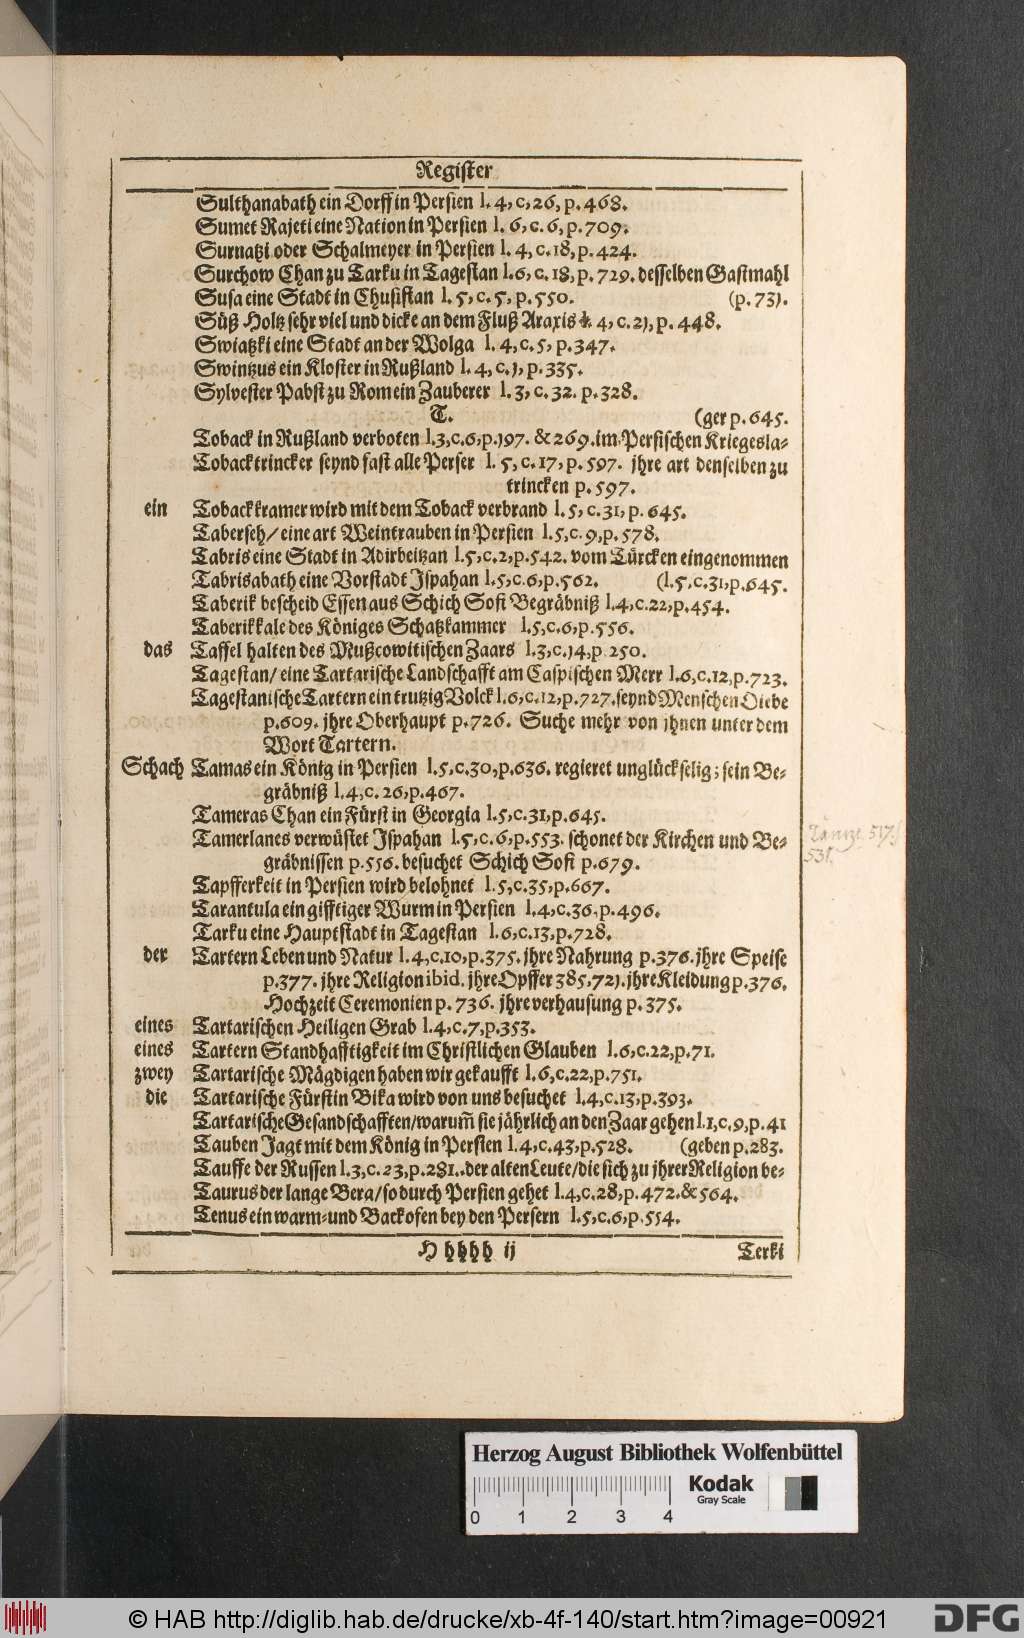 Register
Sulthanabath ein Dorff in Persien l. 4, c, 26, p. 468.
Sumet Rajeti eine Nation in Persien l. 6, c. 6, p. 709.
Surnatzi oder Schalmeyer in Persien l. 4, c. 18, p. 424.
Surchow Chan zu Tarku in Tagestan l. 6, c. 18, p. 729. desselben Gastmahl
Susa eine Stadt in Chusistan l. 5, c. 5, p. 550. (p. 73).
Süß Holtz sehr viel und dicke an dem Fluß Araxis l. 4, c. 2), p. 448.
Swiatzki eine Stadt an der Wolga l. 4, c. 5, p. 347.
Swintzus ein Kloster in Rußland l. 4, c. ), p. 335.
Sylvester Pabst zu Rom ein Zauberer l. 3, c. 32. p. 328.
T. (ger p. 645.
Toback in Rußland verboten l. 3, c. 6, p. )97. & 269. im Persischen Kriegesla-
Toback trincker seynd fast alle Perser l. 5, c. 17, p. 597. jhre art denselben zu
trincken p. 597.
ein Toback kramer wird mit dem Toback verbrand l. 5, c. 31, p. 645.
Taberseh/ eine art Weintrauben in Persien l. 5, c. 9, p. 578.
Tabris eine Stadt in Adirbeitzan l. 5, c. 2, p. 542. vom Türcken eingenommen
Tabrisabath eine Vorstadt Jspahan l. 5, c. 6, p. 562. (l. 5, c. 31, p. 645.
Taberik bescheid Essen aus Schich Sofi Begräbniß l. 4, c. 22, p. 454.
Taberikkale des Königes Schatzkammer l. 5, c. 6, p. 556.
das Taffel halten des Mußcowitischen Zaars l. 3, c. )4, p. 250.
Tagestan/ eine Tartarische Landschafft am Caspischen Merr l. 6, c. 12, p. 723.
Tagestanische Tartern ein trutzig Volck l. 6, c. 12, p. 727. seynd Menschen Diebe
p. 609. jhre Oberhaupt p. 726. Suche mehr von jhnen unter dem
Wort Tartern.
Schach Tamas ein König in Persien l. 5, c. 30, p. 636. regieret unglückselig; sein Be-
gräbniß l. 4, c. 26, p. 467.
Tameras Chan ein Fürst in Georgia l. 5, c. 31, p. 645.
Tamerlanes verwüstet Jspahan l. 5, c. 6, p. 553. schonet der Kirchen und Be-
gräbnissen p. 556. besuchet Schich Sofi p. 679.
Täntze 517.
531.
Tapfferkeit in Persien wird belohnet l. 5, c. 35, p. 667.
Tarantula ein gifftiger Wurm in Persien l. 4, c. 36, p. 496.
Tarku eine Hauptstadt in Tagestan l. 6, c. 13, p. 728.
der Tartern Leben und Natur l. 4, c. 10, p. 375. jhre Nahrung p. 376. jhre Speise
p. 377. jhre Religion ibid. jhre Opffer 385. 72). jhre Kleidung p. 376.
Hochzeit Ceremonien p. 736. jhre verhausung p. 375.
eines Tartarischen Heiligen Grab l. 4, c. 7, p. 353.
eines Tartern Standhafftigkeit im Christlichen Glauben l. 6, c. 22, p. 71.
zwey Tartarische Mägdigen haben wir gekaufft l. 6, c. 22, p. 751.
die Tartarische Fürstin Bika wird von uns besuchet l. 4, c. 13, p. 393.
Tartarische Gesandschafften/ warum̃ sie jährlich an den Zaar gehen l. 1, c, 9, p. 41
Tauben Jagt mit dem König in Persien l. 4, c. 43, p. 528. (geben p. 283.
Tauffe der Russen l. 3, c. 23, p. 281. der alten Leute/ die sich zu jhrer Religion be-
Taurus der lange Berg/ so durch Persien gehet l. 4, c. 28, p. 472. & 564.
Tenus ein warm- und Backofen bey den Persern l. 5, c. 6, p. 554.
H hhhh ij Terki
Herzog August Bibliothek Wolfenbüttel
Kodak
Gray Scale
0 1 2 3 4
© HAB http://diglib.hab.de/drucke/xb-4f-140/start.htm?image=00921
DFG